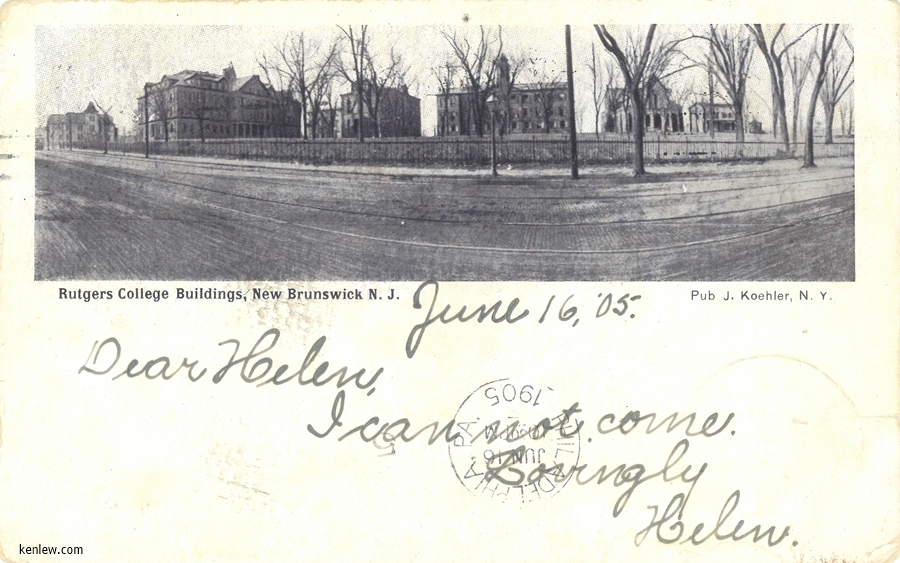 Rutgers College Buildings, New Brunswick N. J.
Pub J. Koehler, N. Y.
June 16, '05.
Dear Helen,
I can not come.
Lovingly
Helen.
PHILADELPHIA PA.
JUN 16
1905
kenlew.com